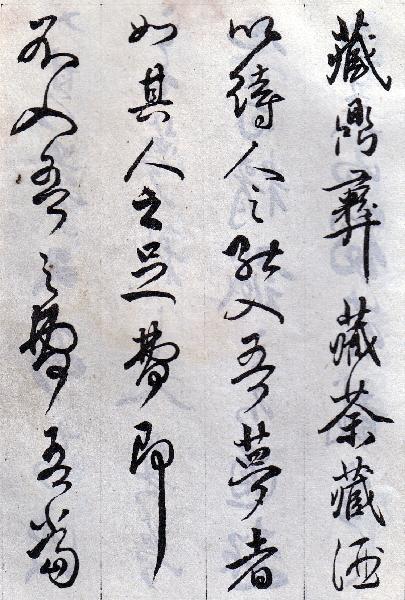 藏鼎彝藏茶藏酒
以待人之能入吾夢者
如其人足夢即
入吾之夢吾當